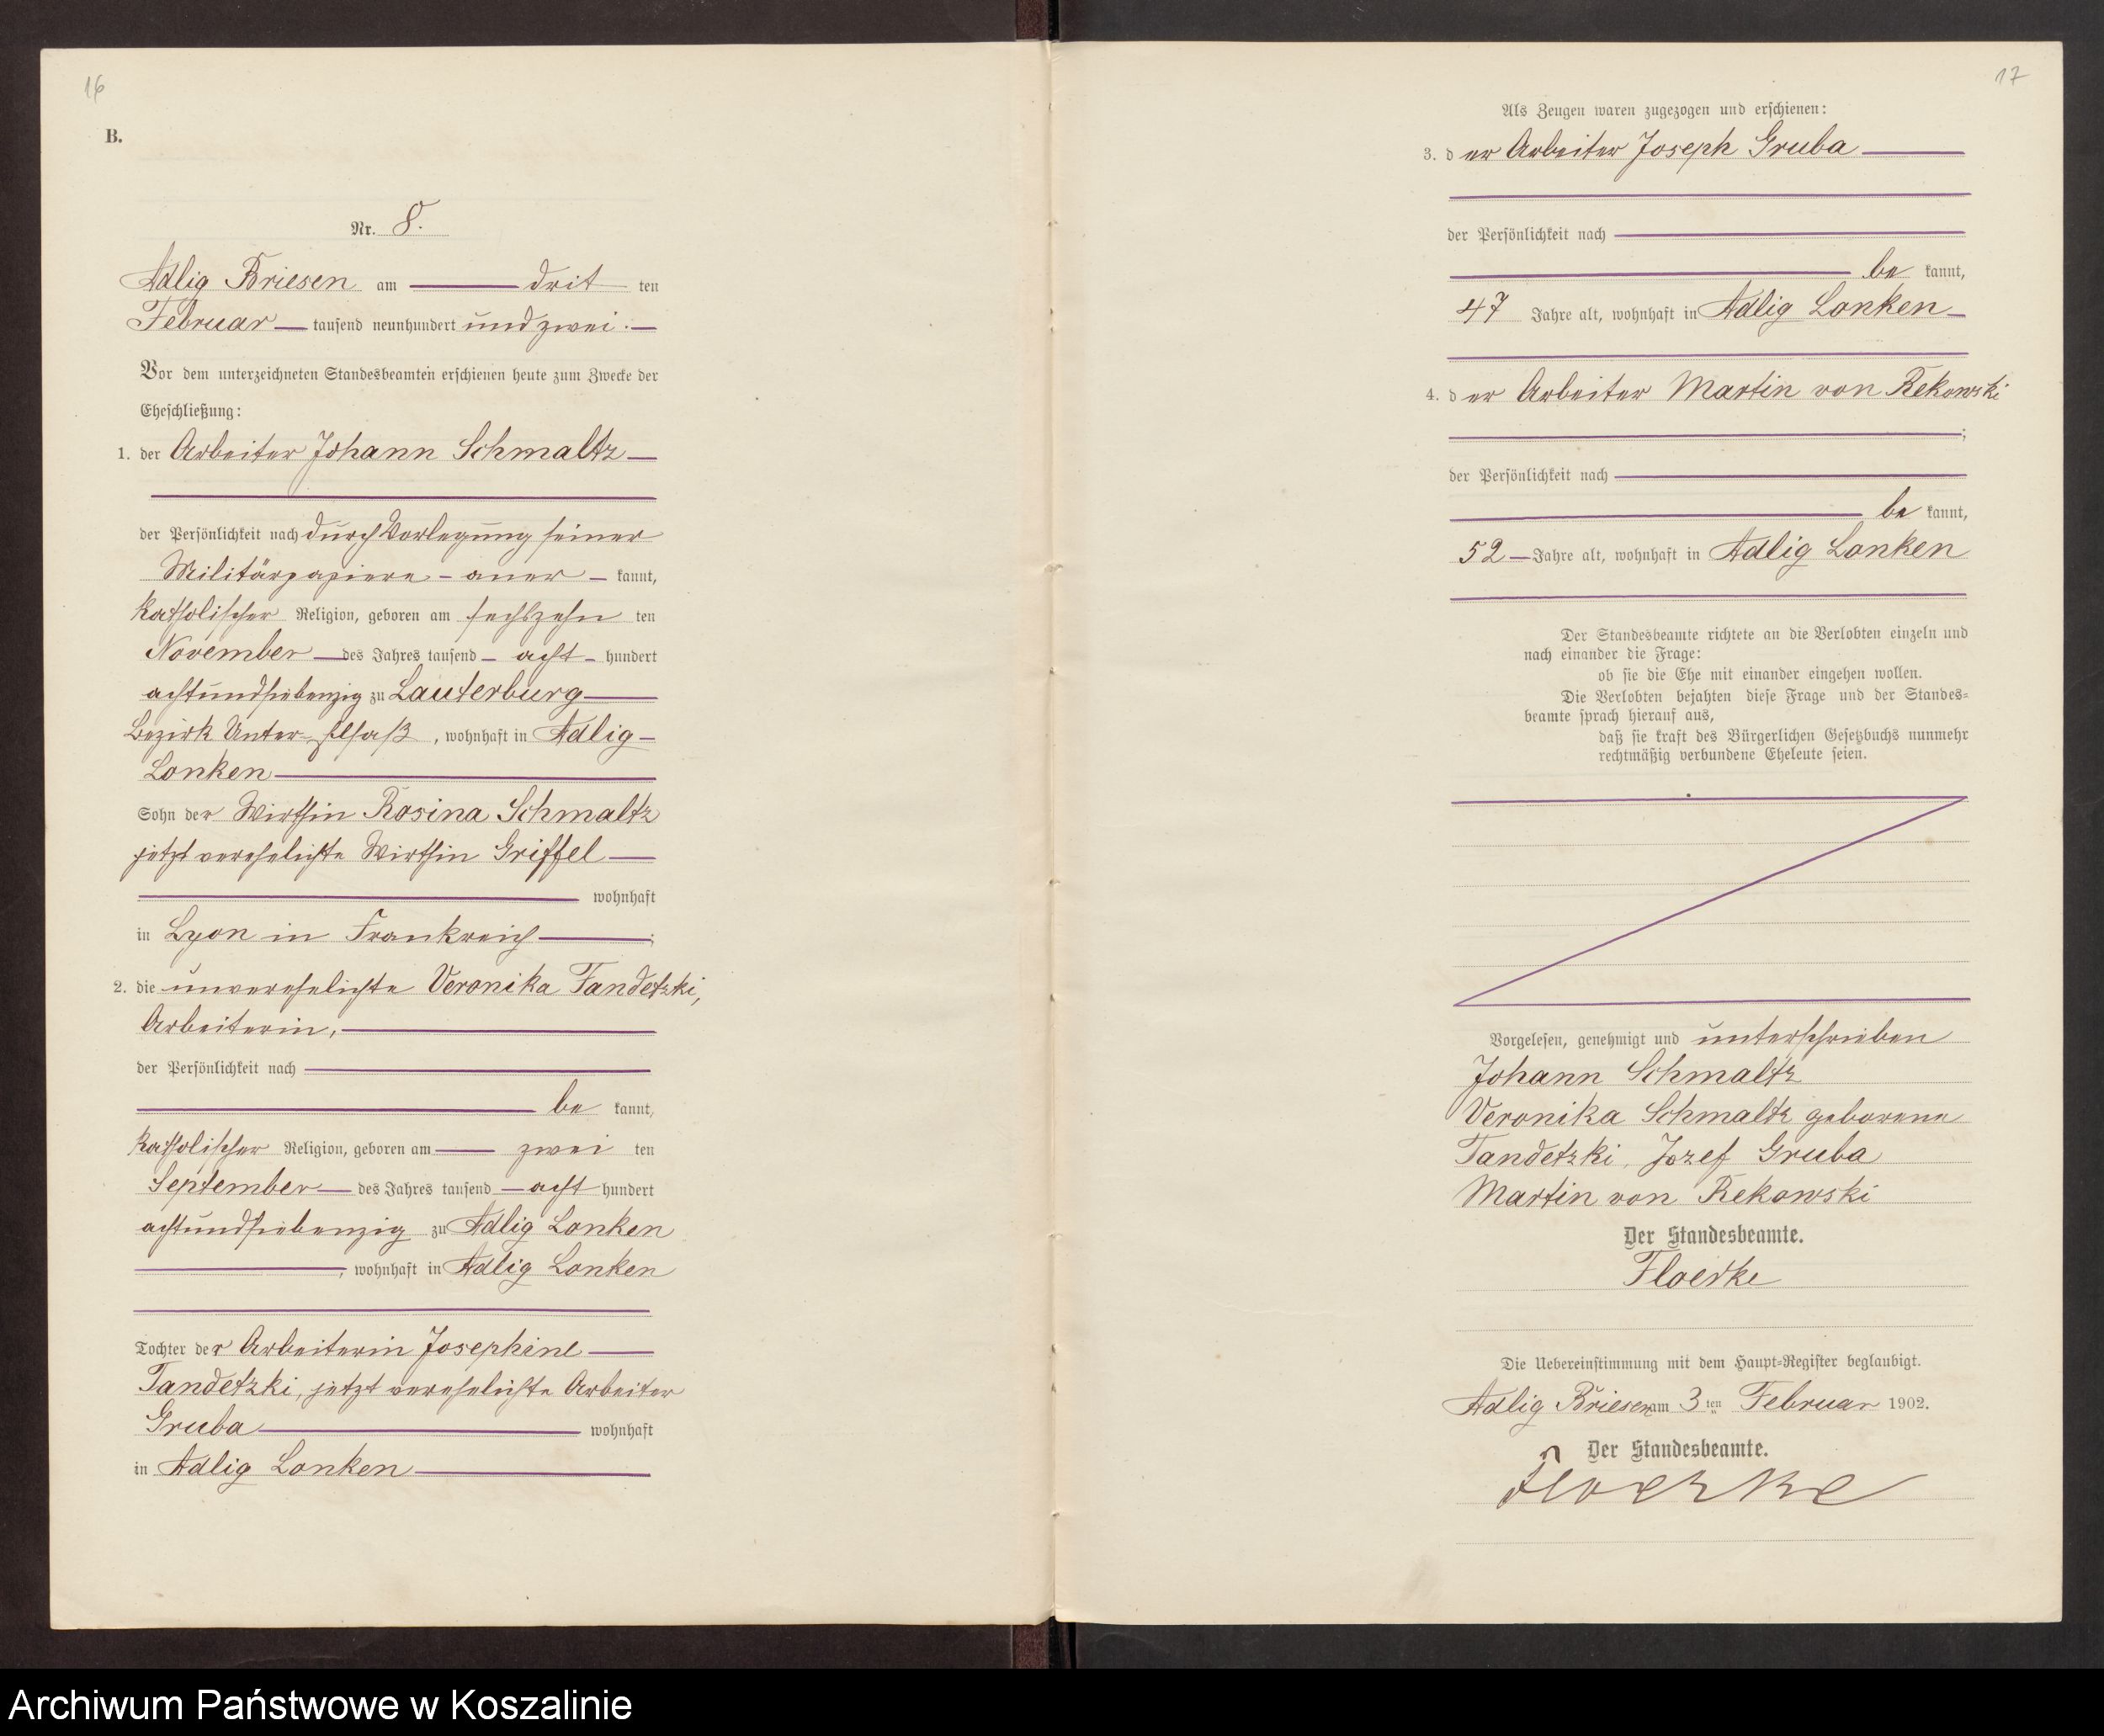 16
B.
Nr. 8.
Adlig Briesen am drit ten
Februar tausend neunhundert und zwei.
Vor dem unterzeichneten Standesbeamten erschienen heute zum Zwecke der
Eheschließung:
1. der Arbeiter Johann Schmaltz
der Persönlichkeit nach durch Vorlegung seiner
Militärpapiere - aner - kannt,
katholischer Religion, geboren am sechszehn ten
November des Jahres tausend - acht - hundert
achtundsiebenzig zu Lauterburg
Bezirk Unter-Elsaß, wohnhaft in Adlig
Lonken
Sohn der Wirthin Rosina Schmaltz
jetzt verehelichte Wirthin Griffel
wohnhaft
in Lyon in Frankreich;
2. die unverehelichte Veronika Tandetzki,
Arbeiterin,
der Persönlichkeit nach
be kannt,
katholischer Religion, geboren am zwei ten
September des Jahres tausend acht hundert
achtundsiebenzig zu Adlig Lonken
, wohnhaft in Adlig Lonken
Tochter der Arbeiterin Josephine
Tandetzki, jetzt verehelichte Arbeiter
Gruba wohnhaft
in Adlig Lonken
17
Als Zeugen waren zugezogen und erschienen:
3. der Arbeiter Joseph Gruba
der Persönlichkeit nach
be kannt,
47 Jahre alt, wohnhaft in Adlig Lonken
4. der Arbeiter Martin von Rekowski
;
der Persönlichkeit nach
be kannt,
52 Jahre alt, wohnhaft in Adlig Lonken
Der Standesbeamte richtete an die Verlobten einzeln und
nach einander die Frage:
ob sie die Ehe mit einander eingehen wollen.
Die Verlobten bejahten diese Frage und der Standes-
beamte sprach hierauf aus,
daß sie kraft des Bürgerlichen Gesetzbuchs nunmehr
rechtmäßig verbundene Eheleute seien.
Vorgelesen, genehmigt und unterschrieben
Johann Schmaltz
Veronika Schmaltz geborene
Tandetzki, Jozef Gruba
Martin von Rekowski
Der Standesbeamte.
Floerke
Die Uebereinstimmung mit dem Haupt-Register beglaubigt.
Adlig Briesen am 3 ten Februar 1902.
Der Standesbeamte.
Floerke
Archiwum Państwowe w Koszalinie